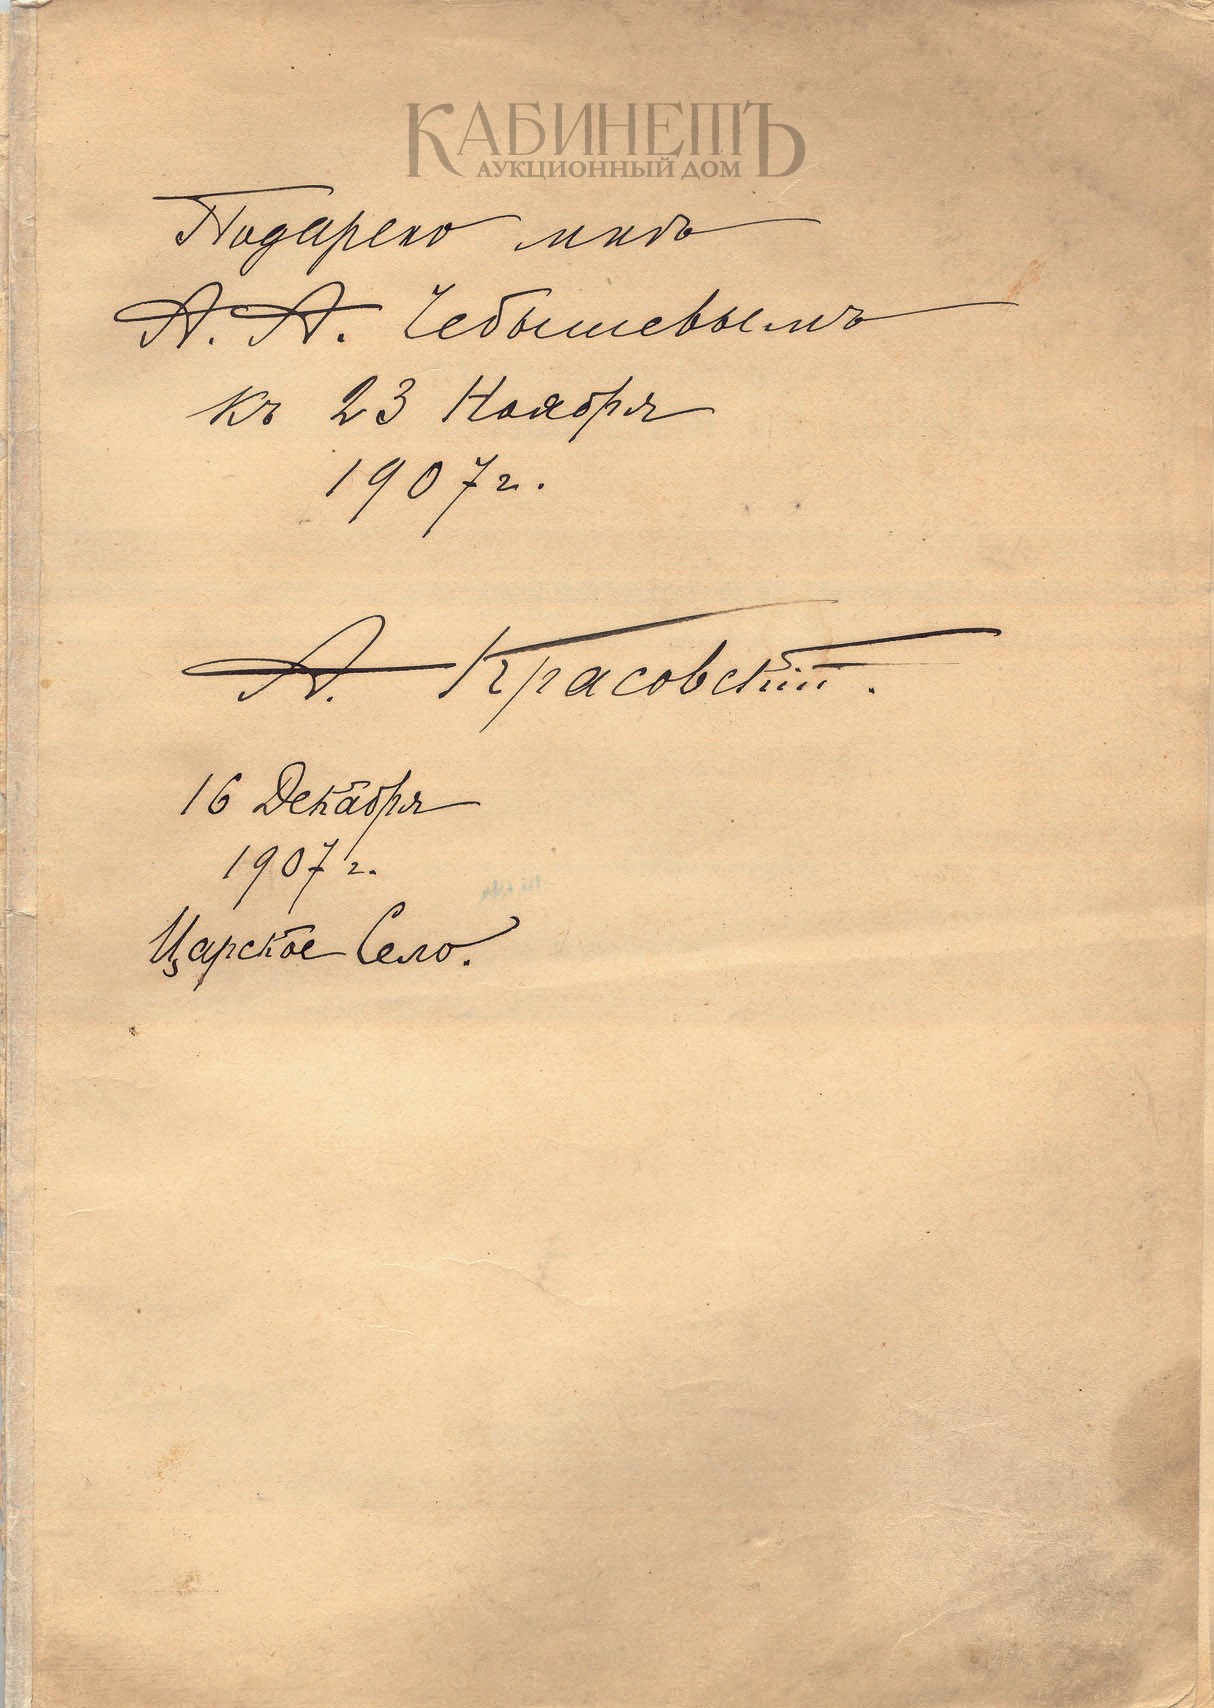 КАБИНЕТЪ
АУКЦИОННЫЙ ДОМ
Подарено мнѣ
А. А. Чебышевымъ
къ 23 Ноября
1907 г.
А. Красовскій.
16 Декабря
1907 г.
Царское Село.